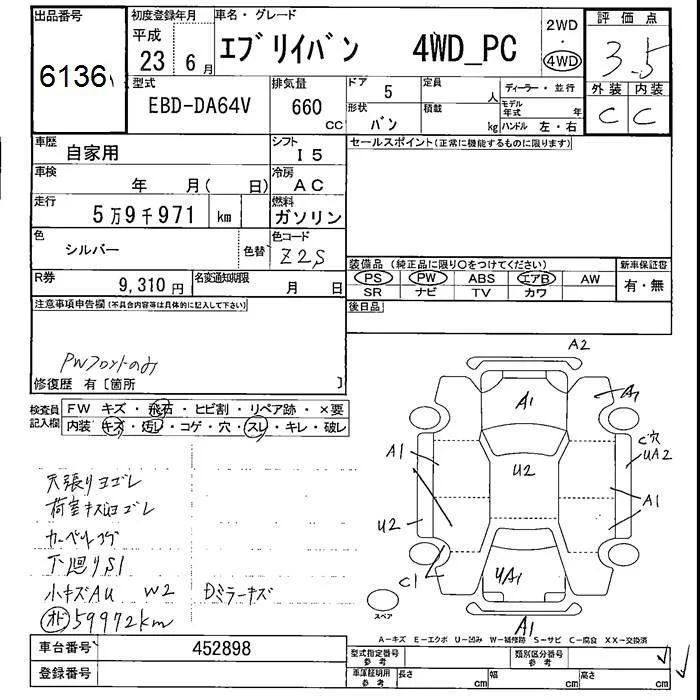 出品番号
6136
初度登録年月
平成
23 6月
車名・グレード
エブリイバン 4WD_PC
2WD
・
4WD
評価点
3.5
外装 内装
C C
型式
EBD-DA64V
排気量
660
CC
ドア
5
定員
人
形状
バン
積載
kg
ディーラー・並行
モデル年式 年
ハンドル 左・右
車歴
自家用
シフト
I5
セールスポイント(正常に機能するものに限ります)
車検
年 月( 日)
冷房
AC
走行
5万9千971 km
燃料
ガソリン
色
シルバー
色替
色コード
Z2S
装備品(純正品に限り○をつけてください)
PS PW ABS エアB AW
SR ナビ TV カワ
新車保証書
有・無
R券
9,310円
名変通知期限
月 日
後日品
注意事項申告欄(不具合内容等は具体的に記入して下さい)
PWフロントのみ
修復歴 有〔箇所 〕
検査員記入欄
FW キズ・飛石・ヒビ割・リペア跡・×要
内装 キズ・汚レ・コゲ・穴・スレ・キレ・破レ
天張りヨゴレ
荷室キズヨゴレ
カーペットコゲ
下廻りS1
小キズAU W2 Dミラーキズ
オド 59972km
A2
A1
A1
C穴
UA2
A1
U2
A1
U2
C1
UA1
A1
スペア
A-キズ E-エクボ U-凹み W-補修跡 S-サビ C-腐食 XX-交換済
車台番号
452898
登録番号
型式指定番号
参考
類別区分番号
参考
車庫証明用
参考
長さ cm
幅 cm
高さ cm